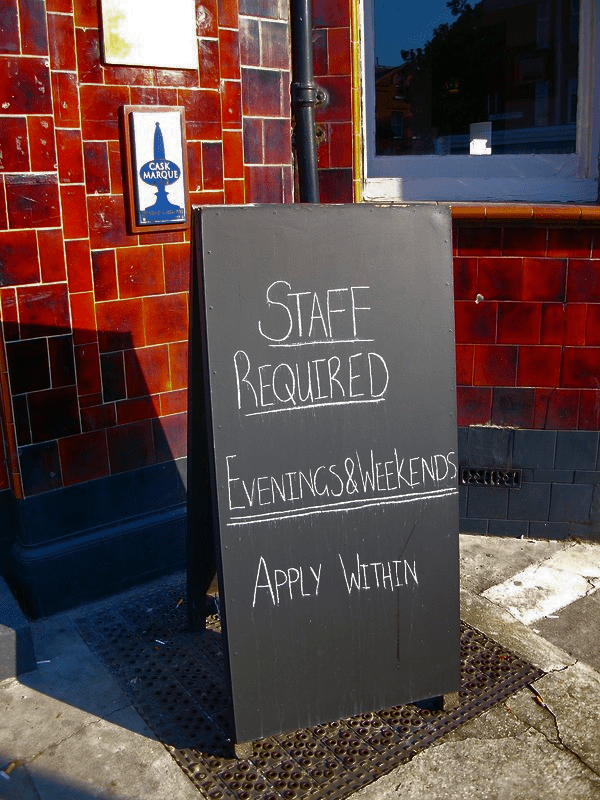 CASK
MARQUE
STAFF
REQUIRED
EVENINGS&WEEKENDS
APPLY WITHIN